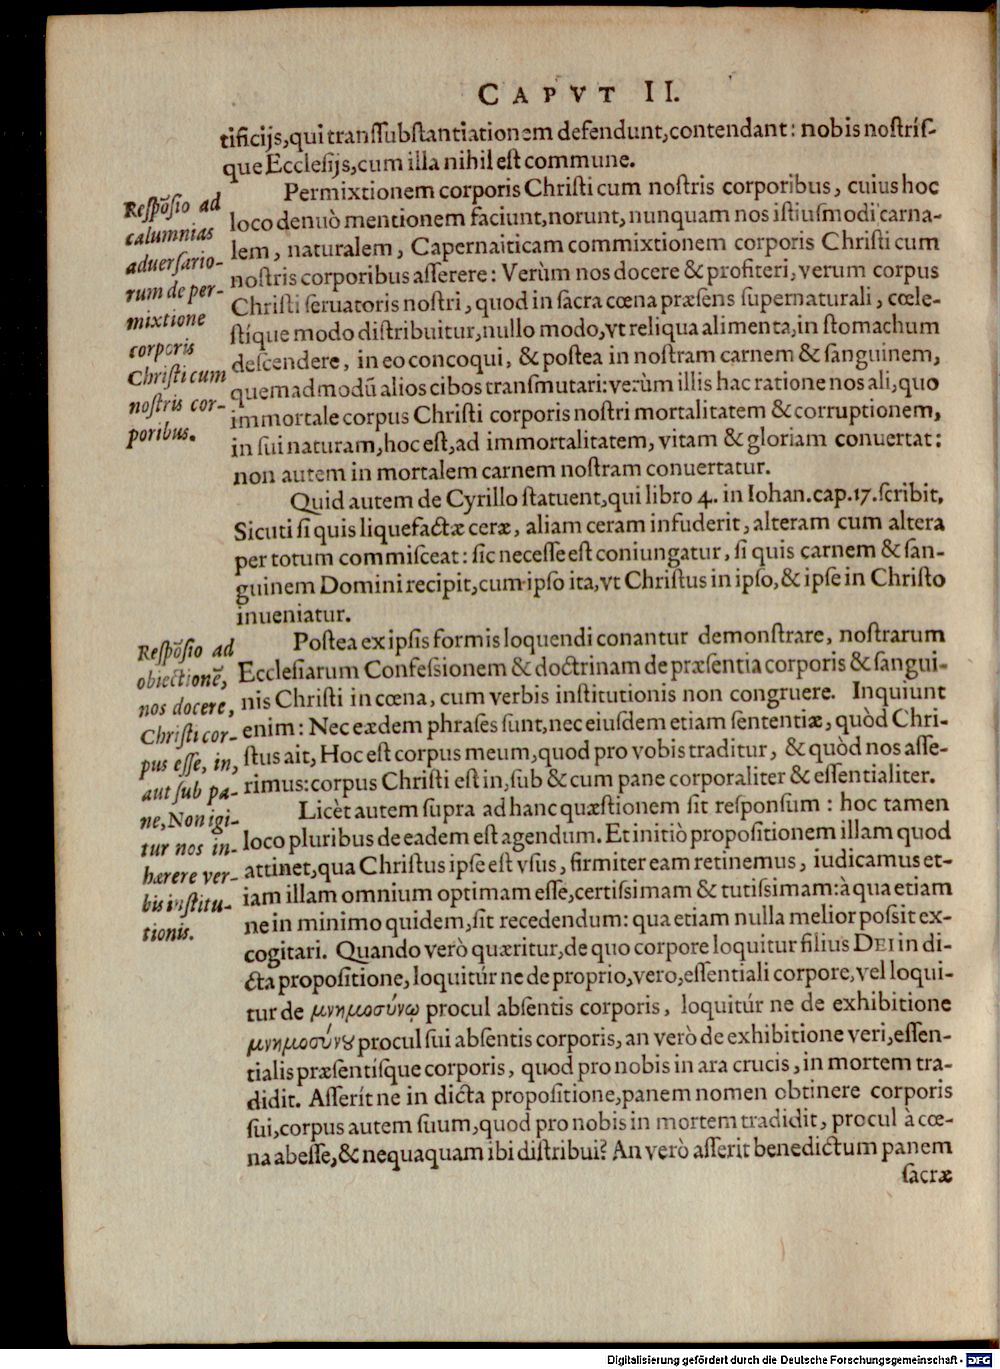 CAPVT II.
tificijs, qui transsubstantiationem defendunt, contendant: nobis nostrís-
que Ecclesijs, cum illa nihil est commune.
Respōsio ad
calumnias
aduersario-
rum de per-
mixtione
corporis
Christi cum
nostris cor-
poribus.
Permixtionem corporis Christi cum nostris corporibus, cuius hoc
loco denuò mentionem faciunt, norunt, nunquam nos istiusmodi carna-
lem, naturalem, Capernaiticam commixtionem corporis Christi cum
nostris corporibus asserere: Verùm nos docere & profiteri, verum corpus
Christi seruatoris nostri, quod in sacra cœna præsens supernaturali, cœle-
stíque modo distribuitur, nullo modo, vt reliqua alimenta, in stomachum
descendere, in eo concoqui, & postea in nostram carnem & sanguinem,
quemadmodũ alios cibos transmutari: verùm illis hac ratione nos ali, quo
immortale corpus Christi corporis nostri mortalitatem & corruptionem,
in sui naturam, hoc est, ad immortalitatem, vitam & gloriam conuertat:
non autem in mortalem carnem nostram conuertatur.
Quid autem de Cyrillo statuent, qui libro 4. in Iohan. cap. 17. scribit,
Sicuti si quis liquefactæ ceræ, aliam ceram infuderit, alteram cum altera
per totum commisceat: sic necesse est coniungatur, si quis carnem & san-
guinem Domini recipit, cum ipso ita, vt Christus in ipso, & ipse in Christo
inueniatur.
Respōsio ad
obiectionē,
nos docere,
Christi cor-
pus esse, in,
aut sub pa-
ne, Non igi-
tur nos in-
hærere ver-
bis institu-
tionis.
Postea ex ipsis formis loquendi conantur demonstrare, nostrarum
Ecclesiarum Confessionem & doctrinam de præsentia corporis & sangui-
nis Christi in cœna, cum verbis institutionis non congruere. Inquiunt
enim: Nec eædem phrases sunt, nec eiusdem etiam sententiæ, quòd Chri-
stus ait, Hoc est corpus meum, quod pro vobis traditur, & quòd nos asse-
rimus: corpus Christi est in, sub & cum pane corporaliter & essentialiter.
Licèt autem supra ad hanc quæstionem sit responsum: hoc tamen
loco pluribus de eadem est agendum. Et initiò propositionem illam quod
attinet, qua Christus ipse est vsus, firmiter eam retinemus, iudicamus et-
iam illam omnium optimam esse, certissimam & tutissimam: à qua etiam
ne in minimo quidem, sit recedendum: qua etiam nulla melior possit ex-
cogitari. Quando verò quæritur, de quo corpore loquitur filius DEI in di-
cta propositione, loquitúr ne de proprio, vero, essentiali corpore, vel loqui-
tur de μνημοσύνῳ procul absentis corporis, loquitúr ne de exhibitione
μνημοσύνȣ procul sui absentis corporis, an verò de exhibitione veri, essen-
tialis præsentísque corporis, quod pro nobis in ara crucis, in mortem tra-
didit. Asserít ne in dicta propositione, panem nomen obtinere corporis
sui, corpus autem suum, quod pro nobis in mortem tradidit, procul à cœ-
na abesse, & nequaquam ibi distribui? An verò asserit benedictum panem
sacræ
Digitalisierung gefördert durch die Deutsche Forschungsgemeinschaft - DFG